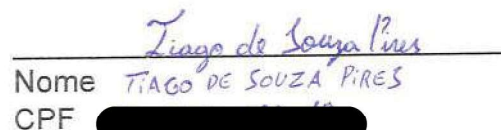 Tiago de Souza Pires
Nome TIAGO DE SOUZA PIRES
CPF